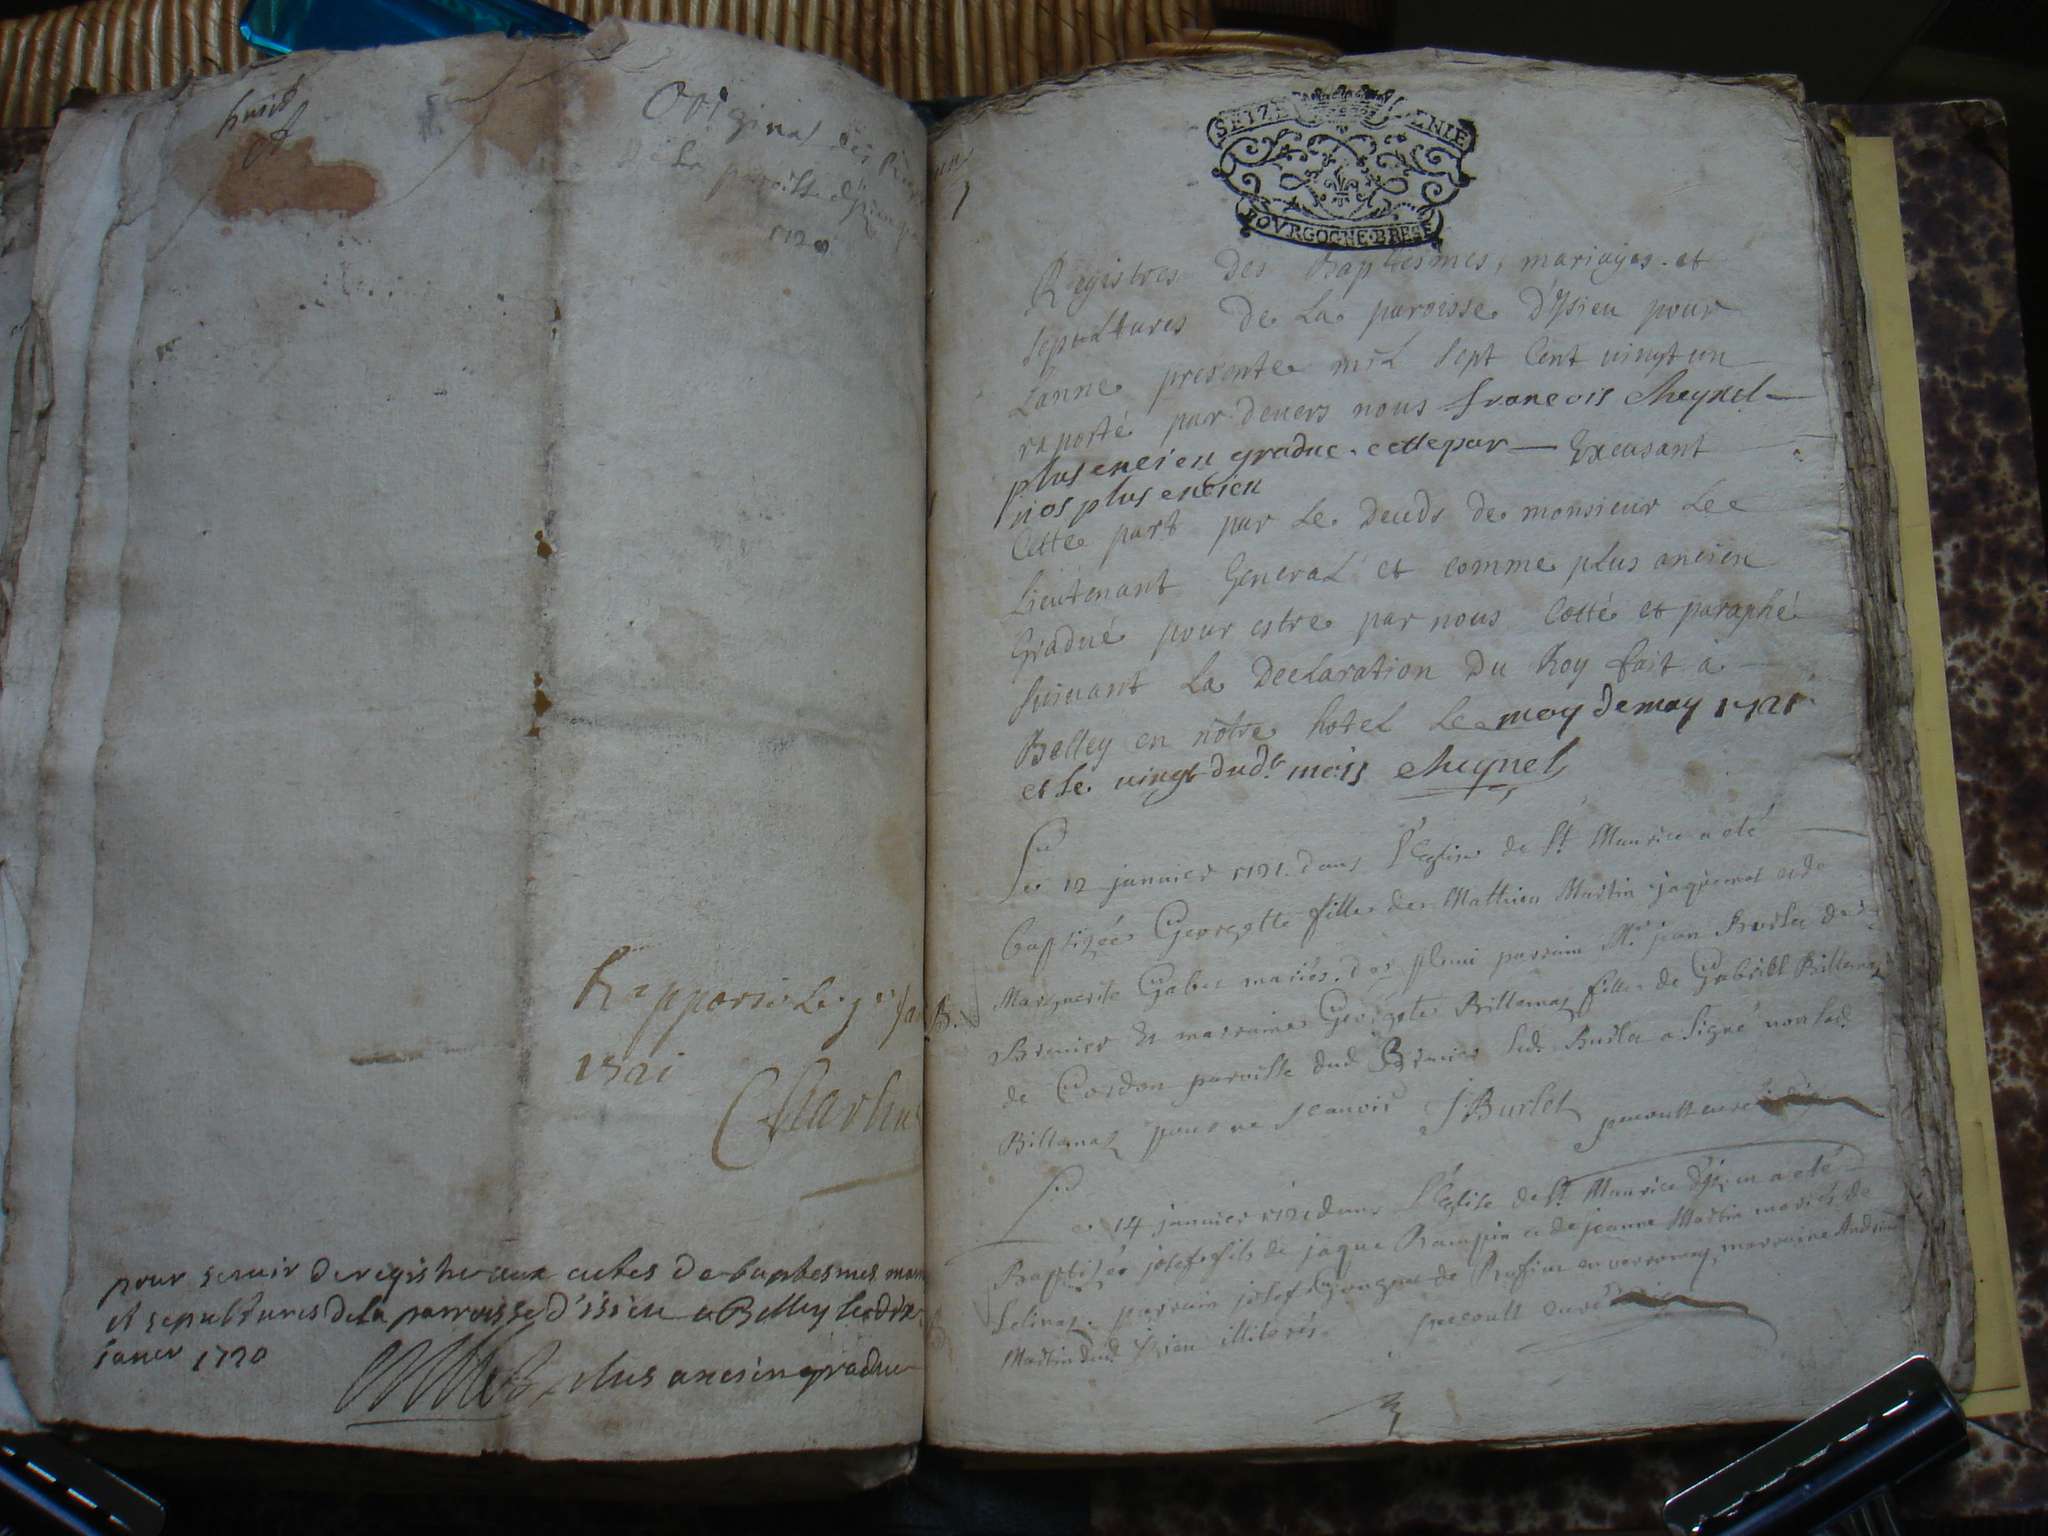 huict
Original des
de la paroisse
1720
Rapporté le
1721
pour servir de registre aux actes de baptesmes
et sepultures de la parroisse d'issieu a Belley le dix
janvier 1720
plus ancien gradue
SEIZE ENIE
BOVRGOGNE·BRESSE
Registres des Baptesmes, mariages et
sepultures de La paroisse d'Ysieu pour
Lanne presente mil sept Cent vingt un
raporté par devers nous francois Cheynel
plus encien gradue cette par Excusant
nos plus encien
Cette part par Le Deuds de monsieur Le
Lieutenant General et comme plus ancien
Gradué pour estre par nous Cotté et paraphé
suivant La Declaration Du Roy fait à
Belley en nôtre hotel Le moy de may 1721
et le vingt dud. mois Cheynel
Le 12 janvier 1721 dans l'Eglise de St Maurice a eté
baptizée Georgette fille de Mathieu Martin jaquemet et de
Marguerite mariés parrain Mr jean Burlet de
Brenier et marraine Georgete Billemaz fille de Gabriel Billemaz
de Cordon paroisse dud Brenier led. Burlet a signé non lad.
Billemaz pour ne scavoir J Burlet
Le 14 janvier 1721 dans l'Eglise de St Maurice d'Ysieu a eté
Baptizé josef fils de jaque Rampin et de jeanne Martin mariés de
parrain josef de marraine
Martin dud Ysieu illiterés curé